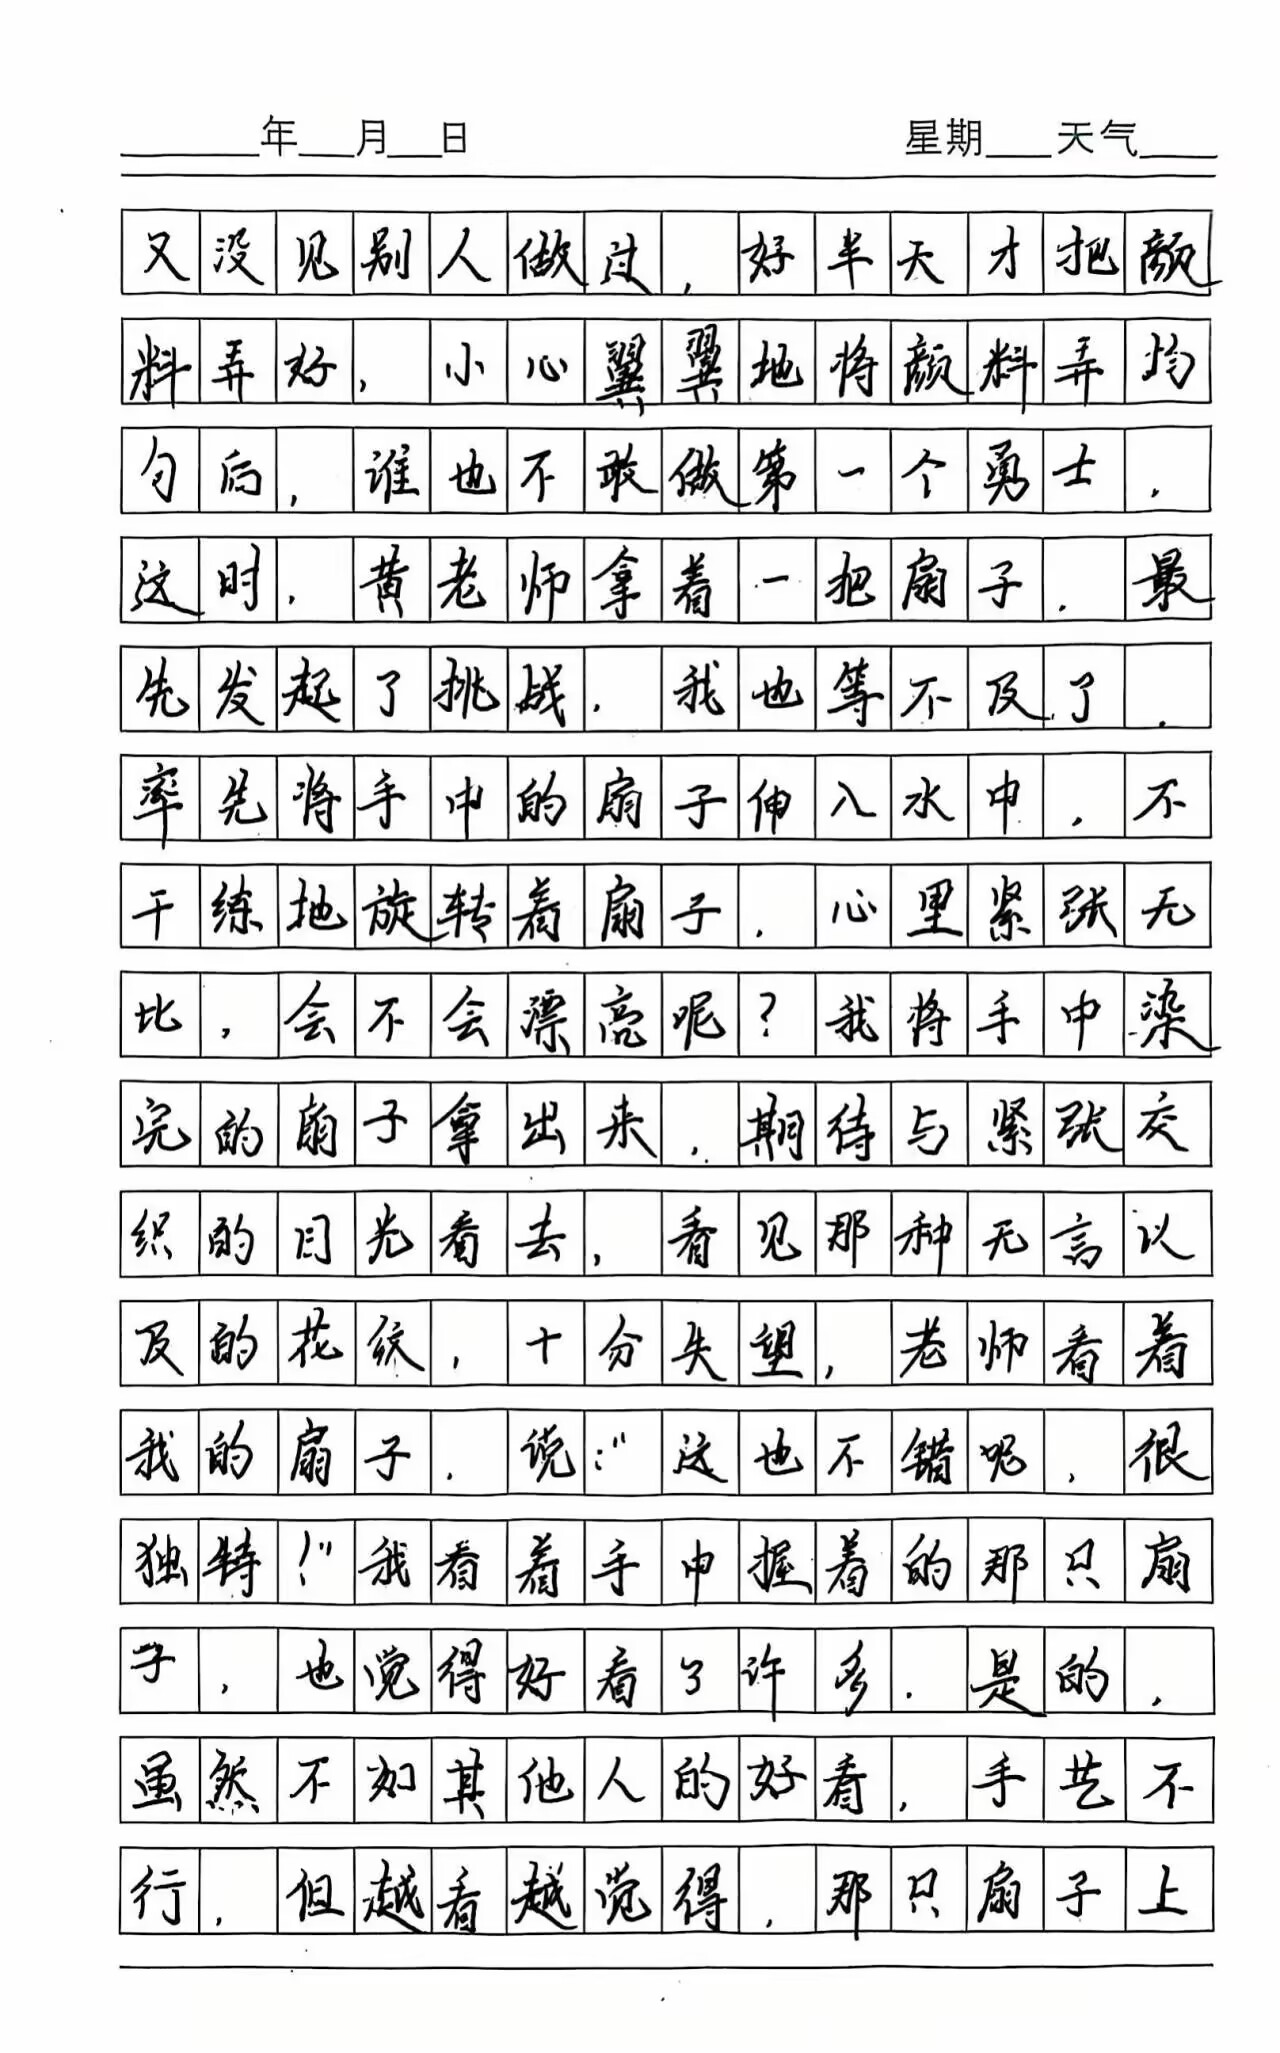 年 月 日 星期 天气
又没见别人做过，好半天才把颜
料弄好，小心翼翼地将颜料弄均
匀后，谁也不敢做第一个勇士，
这时，黄老师拿着一把扇子，最
先发起了挑战，我也等不及了，
率先将手中的扇子伸入水中，不
干练地旋转着扇子，心里紧张无
比，会不会漂亮呢？我将手中染
完的扇子拿出来，期待与紧张交
织的目光看去，看见那种无言以
及的花纹，十分失望，老师看着
我的扇子，说：“这也不错呢，很
独特！”我看着手中握着的那只扇
子，也觉得好看了许多，是的，
虽然不如其他人的好看，手艺不
行，但越看越觉得，那只扇子上